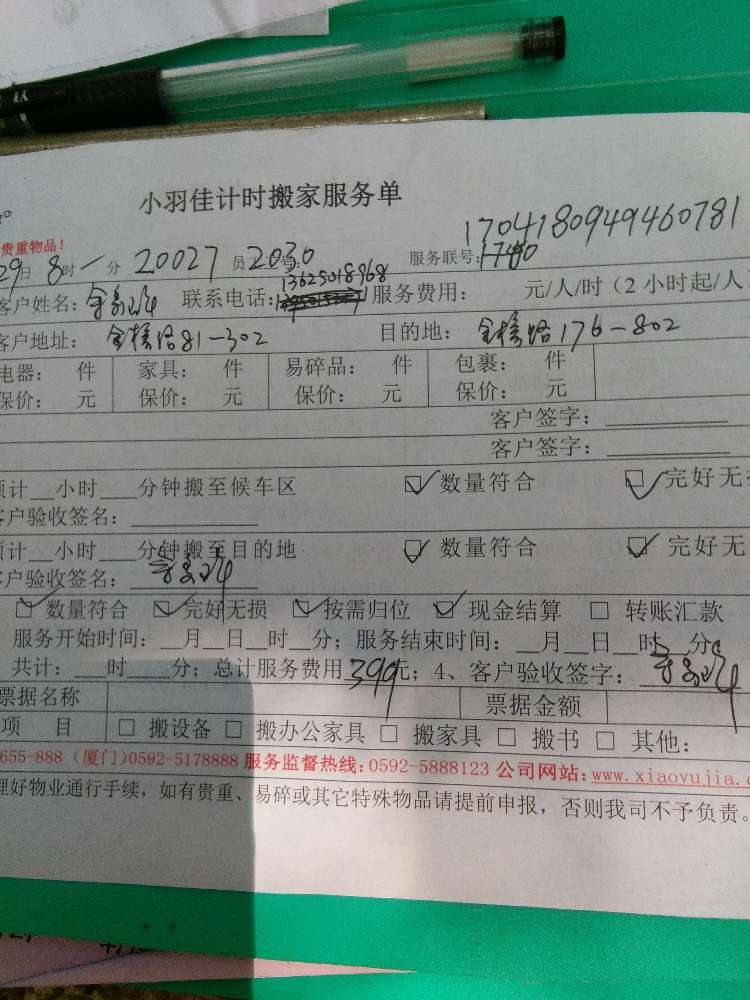 小羽佳计时搬家服务单
1704180949460781
贵重物品！
29日 8时 分 20027 员2030号 服务联号:
客户姓名: 联系电话: 13625018968 服务费用: 元/人/时（2小时起/人
客户地址: 81-302 目的地: 176-802
电器: 件 家具: 件 易碎品: 件 包裹: 件
保价: 元 保价: 元 保价: 元 保价: 元
客户签字:
客户签字:
预计__小时___分钟搬至候车区 数量符合 完好无
客户验收签名:
预计__小时___分钟搬至目的地 数量符合 完好无
客户验收签名:
数量符合 完好无损 按需归位 现金结算 转账汇款
服务开始时间: __月__日__时__分; 服务结束时间: __月__日__时__分
共计: ___时___分; 总计服务费用399元; 4、客户验收签字:
票据名称 票据金额
项 目 搬设备 搬办公家具 搬家具 搬书 其他:
655-888（厦门）0592-5178888 服务监督热线: 0592-5888123 公司网站: www.xiaoyujia.
理好物业通行手续，如有贵重、易碎或其它特殊物品请提前申报，否则我司不予负责。